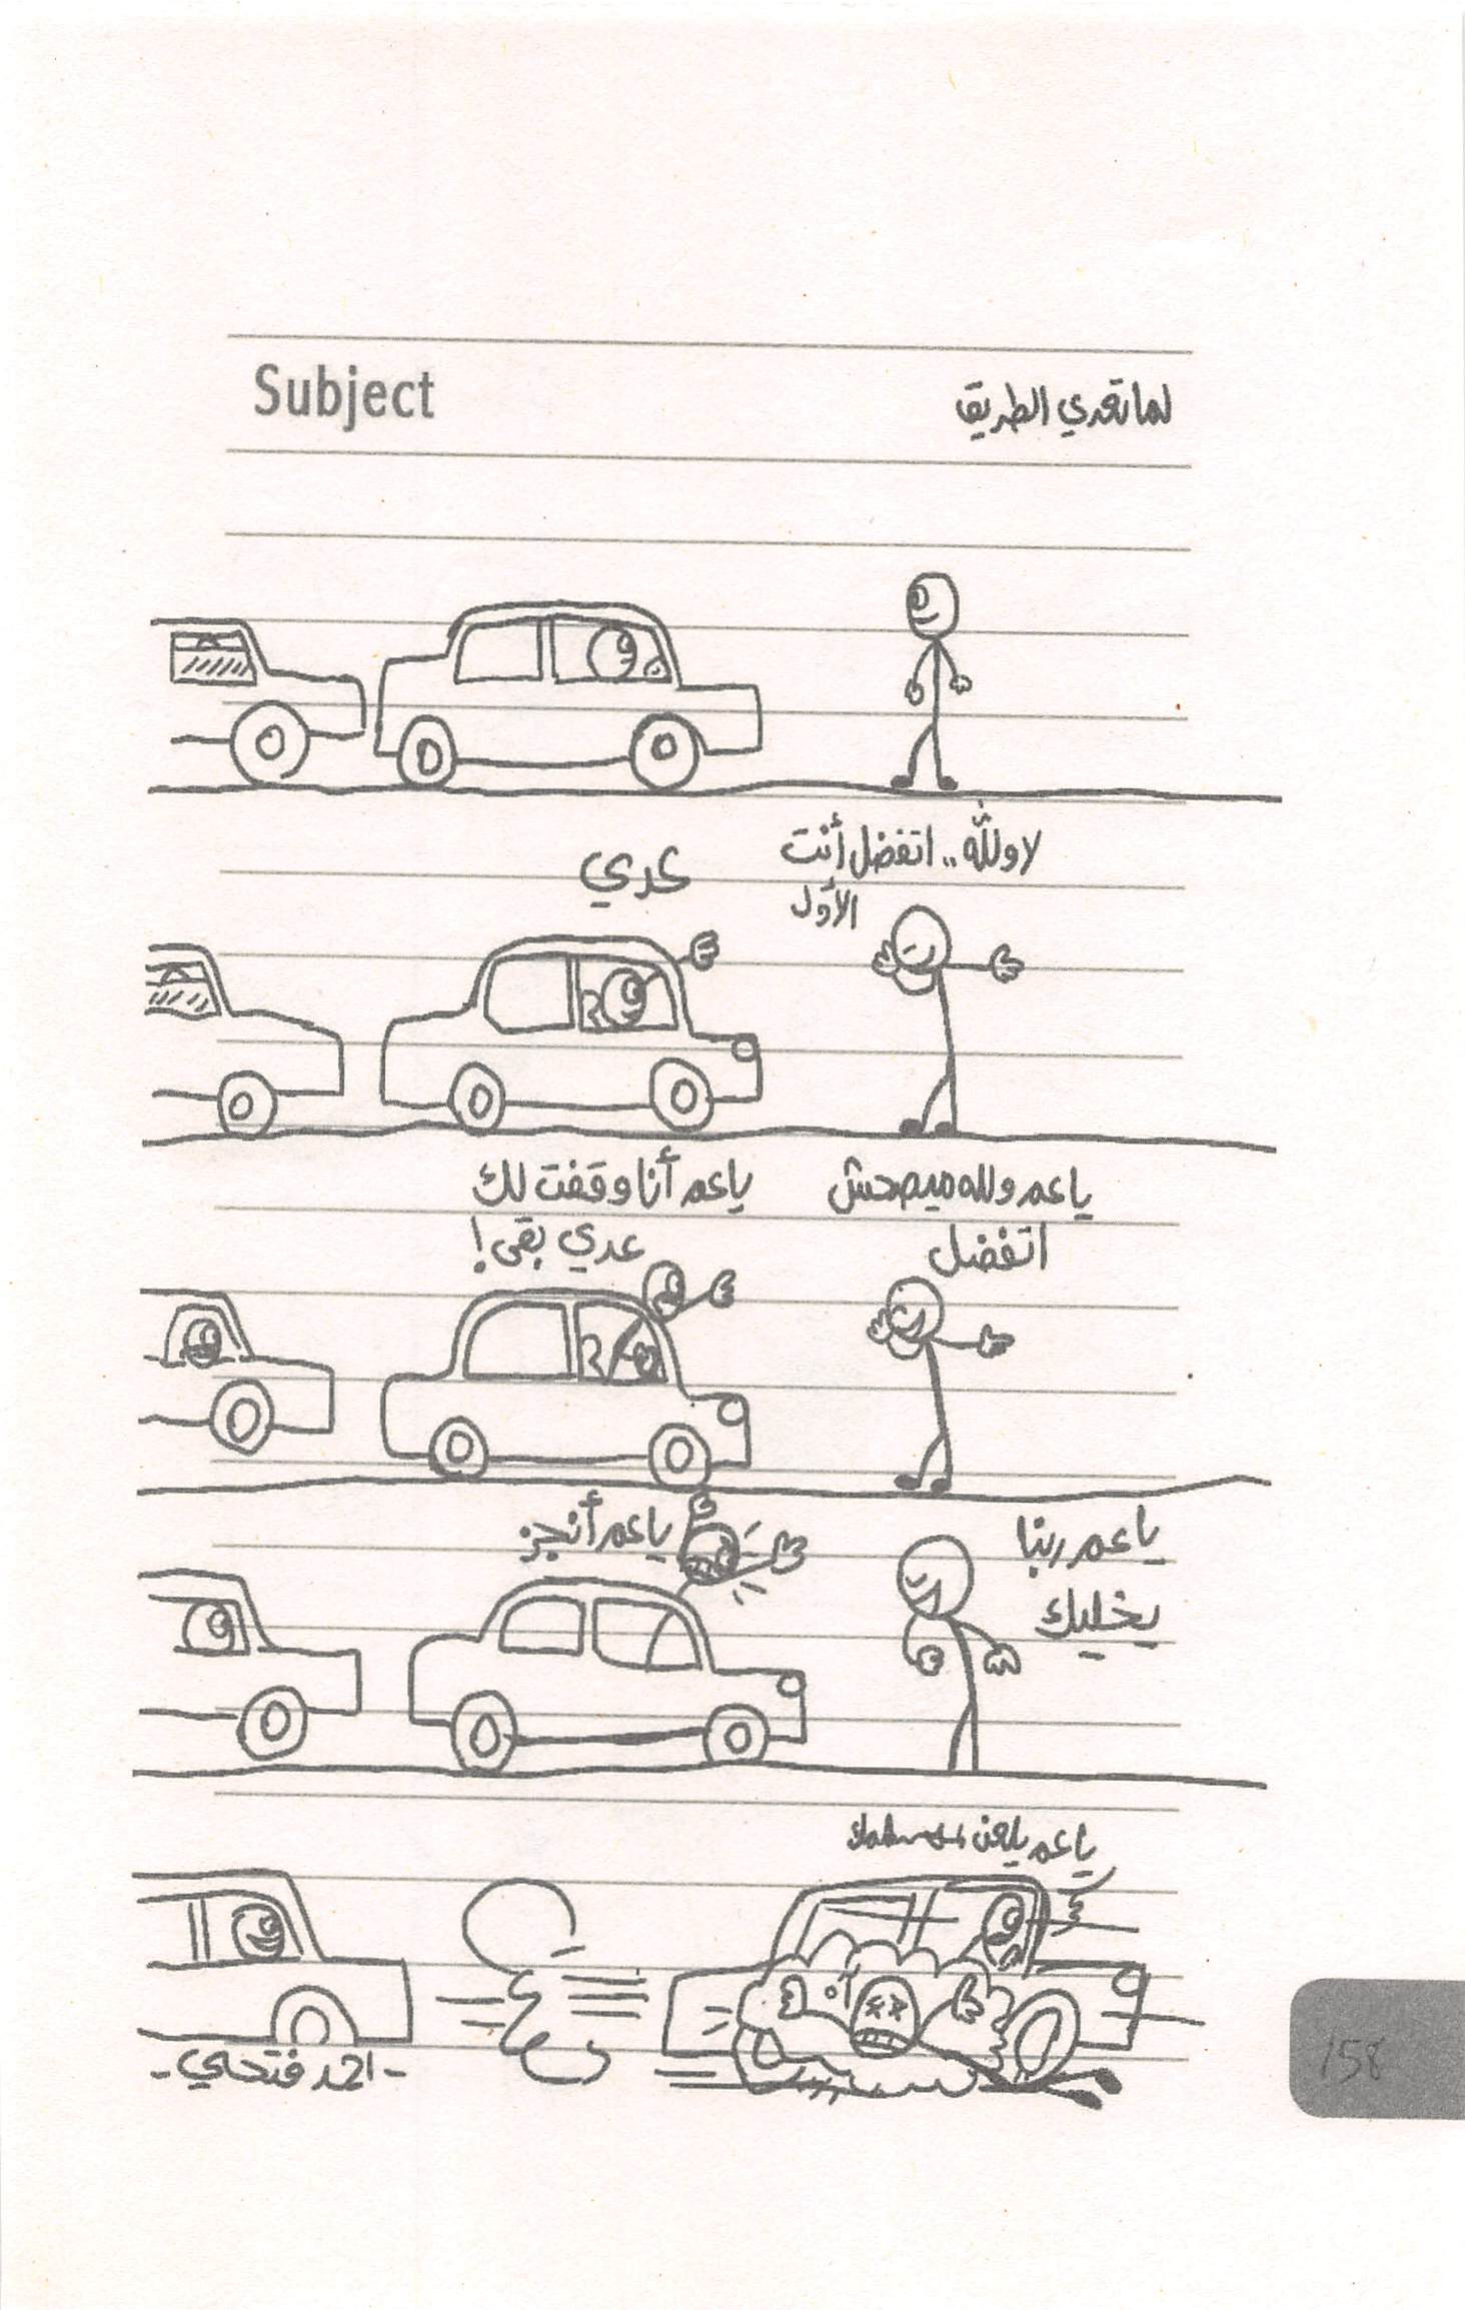 Subject
لما تعدي الطريق
لا والله.. اتفضل أنت
الأول
عدي
يا عم والله ميصحش
اتفضل
يا عم أنا وقفت لك
عدي بقى!
يا عم ربنا
يخليك
يا عم أنجز
يا عم يلعن
-احمد فتحي-
158